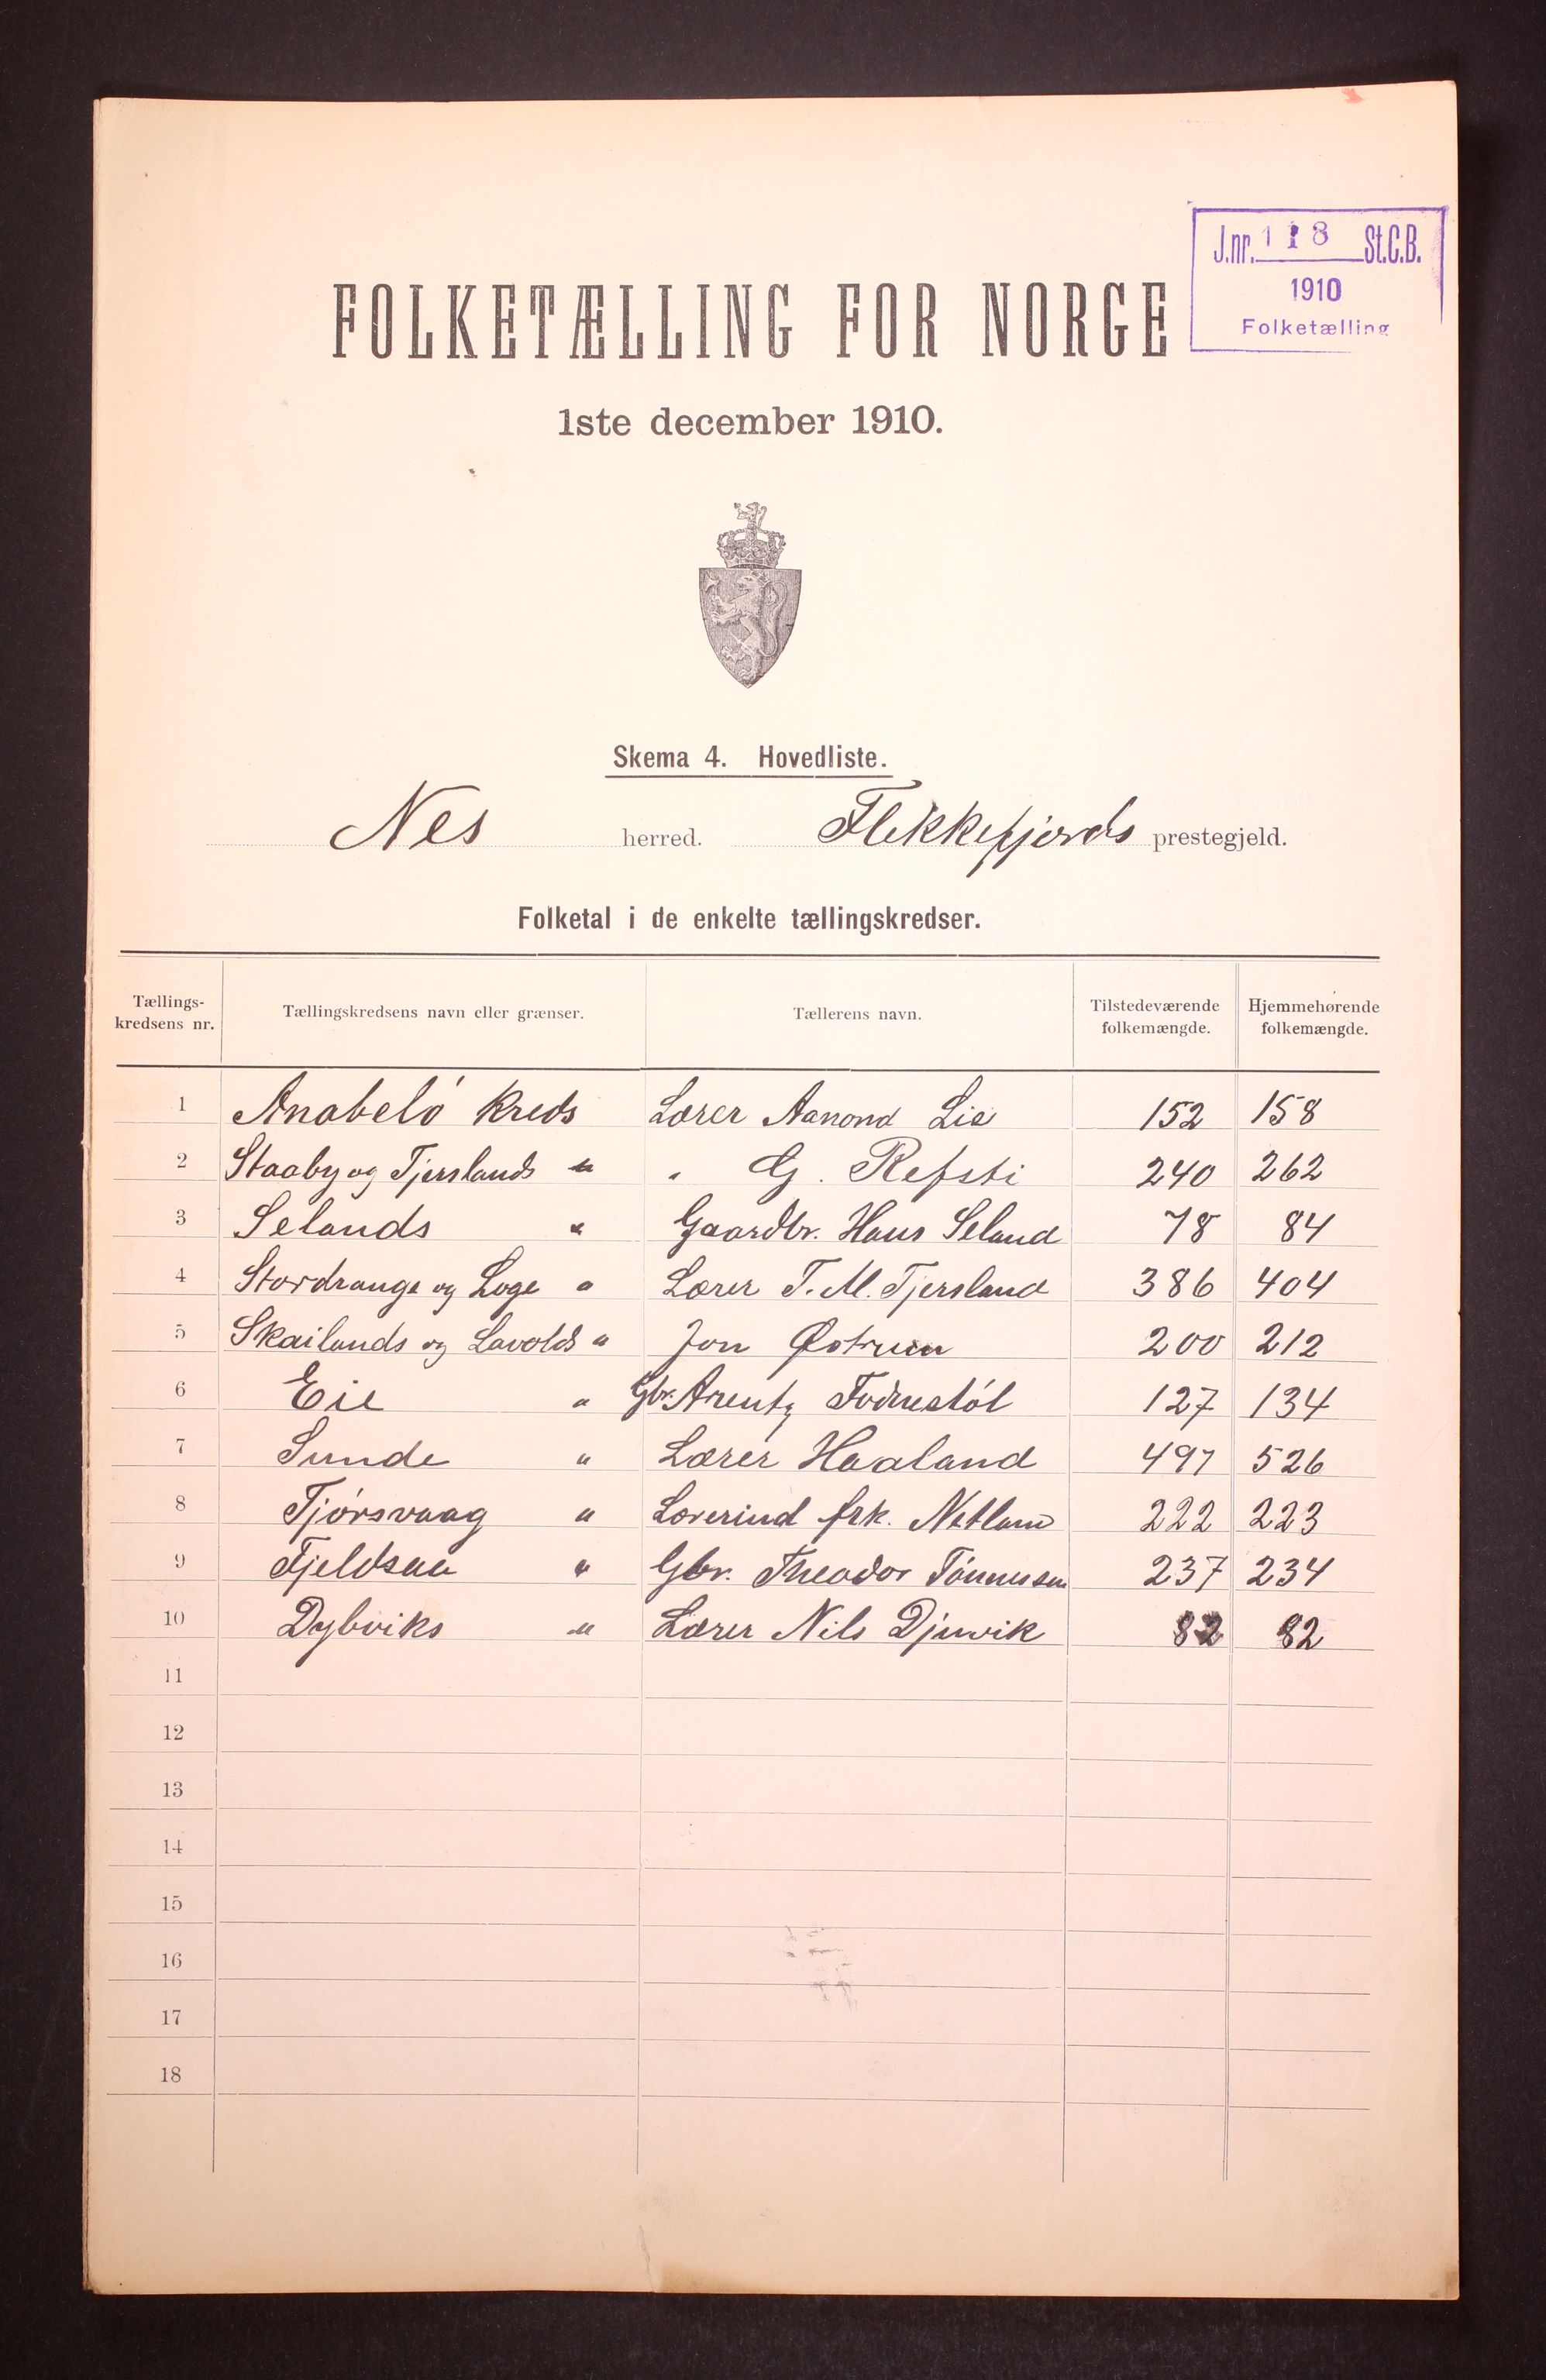 J.nr. 118 St.C.B.
1910
Folketælling
FOLKETÆLLING FOR NORGE
1ste december 1910.
Skema 4. Hovedliste.
Nes herred. Flekkefjords prestegjeld.
Folketal i de enkelte tællingskredser.
Tællings-kredsens nr. Tællingskredsens navn eller grænser. Tællerens navn. Tilstedeværende folkemængde. Hjemmehørende folkemængde.
1 Anabelö Kreds Lærer Aanond Lie 152 158
2 Staaby og Tjerslands " " G. Refsti 240 262
3 Selands " Gaardbr. Hans Seland 78 84
4 Stordrange og Loge " Lærer T. M. Tjersland 386 404
5 Skailands og Lavolds " Jon Østrum 200 212
6 Eie " Gbr. Arentz Fodnestöl 127 134
7 Sunde " Lærer Haaland 497 526
8 Tjörsvaag " Lærerind frk. Netland 222 223
9 Fjeldsaa " Gbr. Theodor Tönnesen 237 234
10 Dybviks " Lærer Nils Djuvik 82 82
11
12
13
14
15
16
17
18